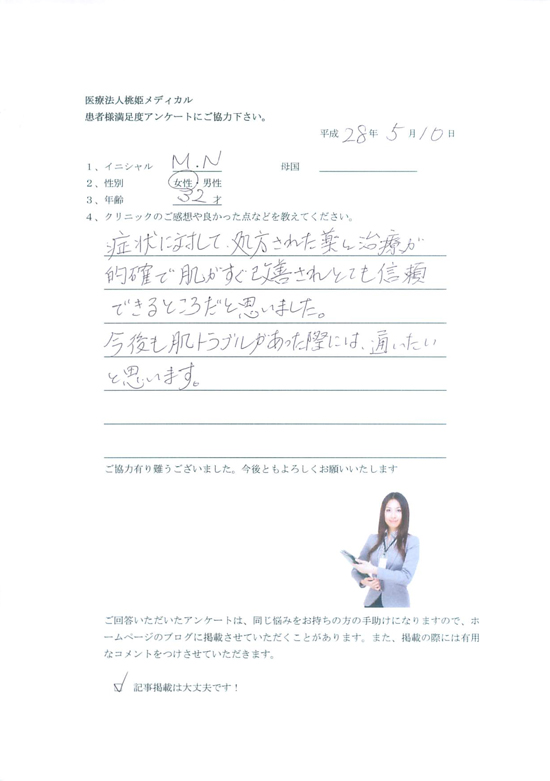 医療法人桃姫メディカル
患者様満足度アンケートにご協力下さい。
平成 28年 5月10日
1、イニシャル M.N 母国
2、性別 女性・男性
3、年齢 32才
4、クリニックのご感想や良かった点などを教えてください。
症状に対して、処方された薬や治療が
的確で肌がすぐ改善されとても信頼
できるところだと思いました。
今後も肌トラブルがあった際には、通いたい
と思います。
ご協力有り難うございました。今後ともよろしくお願いいたします
ご回答いただいたアンケートは、同じ悩みをお持ちの方の手助けになりますので、ホ
ームページのブログに掲載させていただくことがあります。また、掲載の際には有用
なコメントをつけさせていただきます。
記事掲載は大丈夫です！